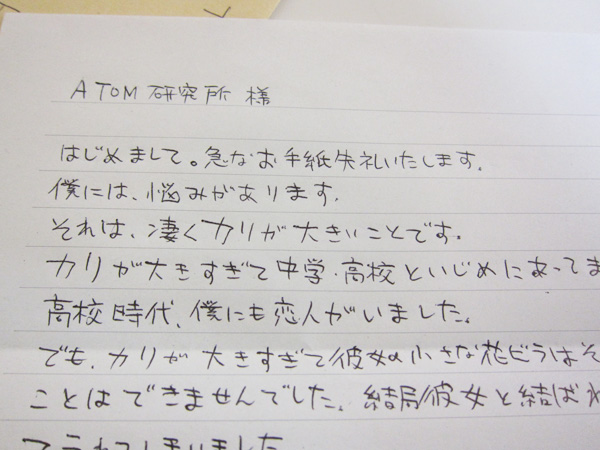 ATOM 研究所 様
はじめまして。急なお手紙失礼いたします.
僕には、悩みがあります.
それは、凄くカリが大きいことです.
カリが大きすぎて中学・高校といじめにあってま
高校時代、僕にも恋人がいました。
でも、カリが大きすぎて彼女の小さな花びらはそ
ことはできませんでした。結局彼女と結ばれ